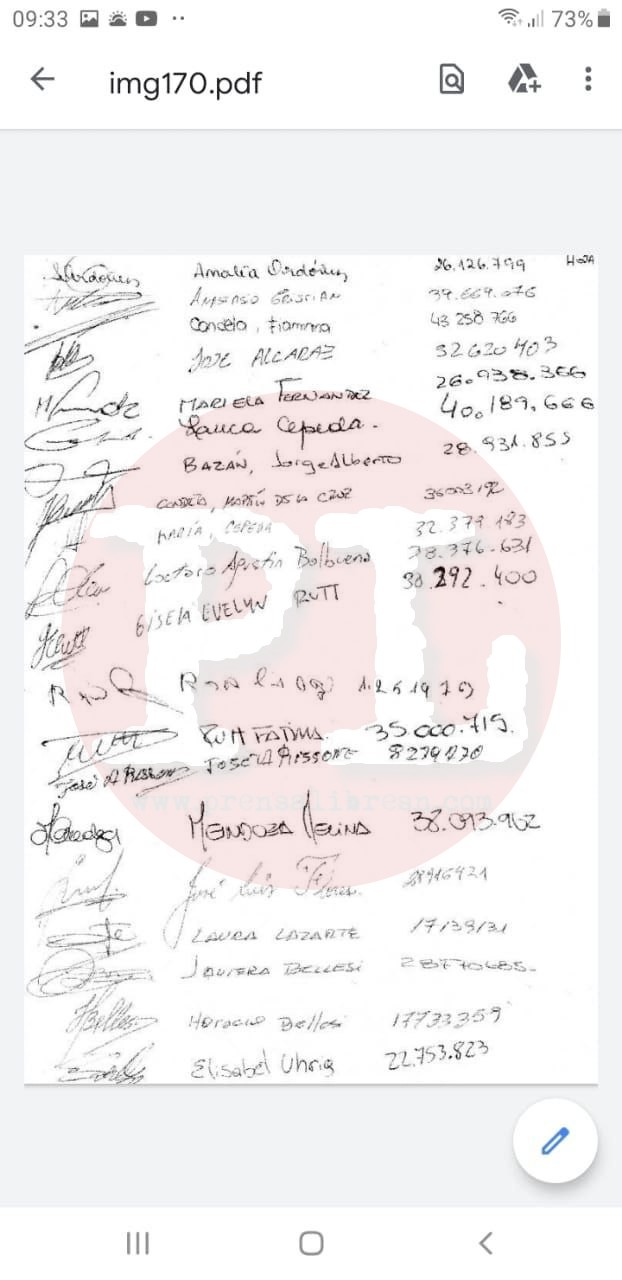 09:33 73%
img170.pdf
HOJA
Amalia Ordóñez 26.126.799
39.669.076
Candela, Fiamma 43 258 766
JOSE ALCARAZ 32620403
MARIELA FERNANDEZ 26.938.366
Laura Cepeda. 40.189.666
BAZÁN, Jorge Alberto 28.931.855
MARTÍN DE LA CRUZ
MARÍA, CEPEDA 32.379 183
Agustín Balbuena 38.376.631
GISELA EVELYN RUTT 30.292.400
RUH FATIMA. 35000.715.
José A Rissone JOSE A RISSONE
MENDOZA MELINA 38.093.962
José Luis Flores. 28916421
LAURA LAZARTE
JAVIERA BELLESI 28770685-
HBellesi Horacio Bellesi 17733359
Elisabel Uhrig 22.753.823
PL
www.prensalibrean.com